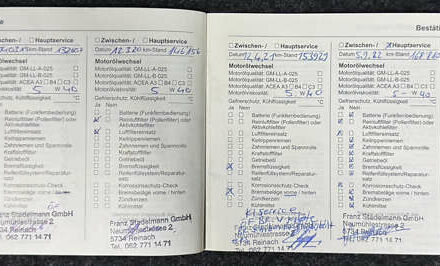 Zwischen- / Hauptservice
km-Stand 132807
Motorölwechsel
Motorqualität: GM-LL-A-025
Motorqualität: GM-LL-B-025
Motorqualität: ACEA A3 B4 C3
Motorviskosität: 5 W 40
Gefrierschutz, Kühlflüssigkeit °C
Ja Nein
Batterie (Funkfernbedienung)
Reinluftfilter (Pollenfilter) oder
Aktivkohlefilter
Luftfiltereinsatz
Keilrippenriemen
Zahnriemen und Spannrolle
Kraftstofffilter
Getriebeöl
Bremsflüssigkeit
Reifenfüllsystem/Reparatur-
satz
Korrosionsschutz-Check
Bremsbeläge vorne / hinten
Zündkerzen
Franz Stadelmann GmbH
Neumühlestrasse 2
5734 Reinach
Tel. 062 771 14 71
Zwischen- / Hauptservice
Datum 12.3.20 km-Stand 146156
Motorölwechsel
Motorölqualität: GM-LL-A-025
Motorölqualität: GM-LL-B-025
Motorölqualität: ACEA A3 B4 C3
Motorölviskosität: 5 W 40
Gefrierschutz, Kühlflüssigkeit °C
Ja Nein
Batterie (Funkfernbedienung)
Reinluftfilter (Pollenfilter) oder
Aktivkohlefilter
Luftfiltereinsatz
Keilrippenriemen
Zahnriemen und Spannrolle
Kraftstofffilter
Getriebeöl
Bremsflüssigkeit
Reifenfüllsystem/Reparatur-
satz
Korrosionsschutz-Check
Bremsbeläge vorne / hinten
Zündkerzen
Franz Stadelmann GmbH
Neumühlestrasse 2
5734 Reinach
Tel. 062 771 14 71
Bestäti
Zwischen- / Hauptservice
Datum 14.4.21 km-Stand 153929
Motorölwechsel
Motorölqualität: GM-LL-A-025
Motorölqualität: GM-LL-B-025
Motorölqualität: ACEA A3 B4 C3
Motorölviskosität: 5 W 40
Gefrierschutz, Kühlflüssigkeit °C
Ja Nein
Batterie (Funkfernbedienung)
Reinluftfilter (Pollenfilter) oder
Aktivkohlefilter
Luftfiltereinsatz
Keilrippenriemen
Zahnriemen und Spannrolle
Kraftstofffilter
Getriebeöl
Bremsflüssigkeit
Reifenfüllsystem/Reparatur-
satz
Korrosionsschutz-Check
Bremsbeläge vorne / hinten
Zündkerzen
Kühlmittel
Franz Stadelmann GmbH
Neumühlestrasse 2
5734 Reinach
Tel. 062 771 14 71
Zwischen- / Hauptservice
Datum 5.9.22 km-Stand
Motorölwechsel
Motorölqualität: GM-LL-A-025
Motorölqualität: GM-LL-B-025
Motorölqualität: ACEA A3
Motorölviskosität: 5 W 40
Gefrierschutz, Kühlflüssigkeit
Ja Nein
Batterie (Funkfernbedienung)
Reinluftfilter (Pollenfilter) oder
Aktivkohlefilter
Luftfiltereinsatz
Keilrippenriemen
Zahnriemen und Spannrolle
Kraftstofffilter
Getriebeöl
Bremsflüssigkeit
Reifenfüllsystem/Reparatur-
satz
Korrosionsschutz-Check
Bremsbeläge vorne / hinten
Zündkerzen
Franz Stadelmann GmbH
Neumühlestrasse 2
5734 Reinach
Tel. 062 771 14 71